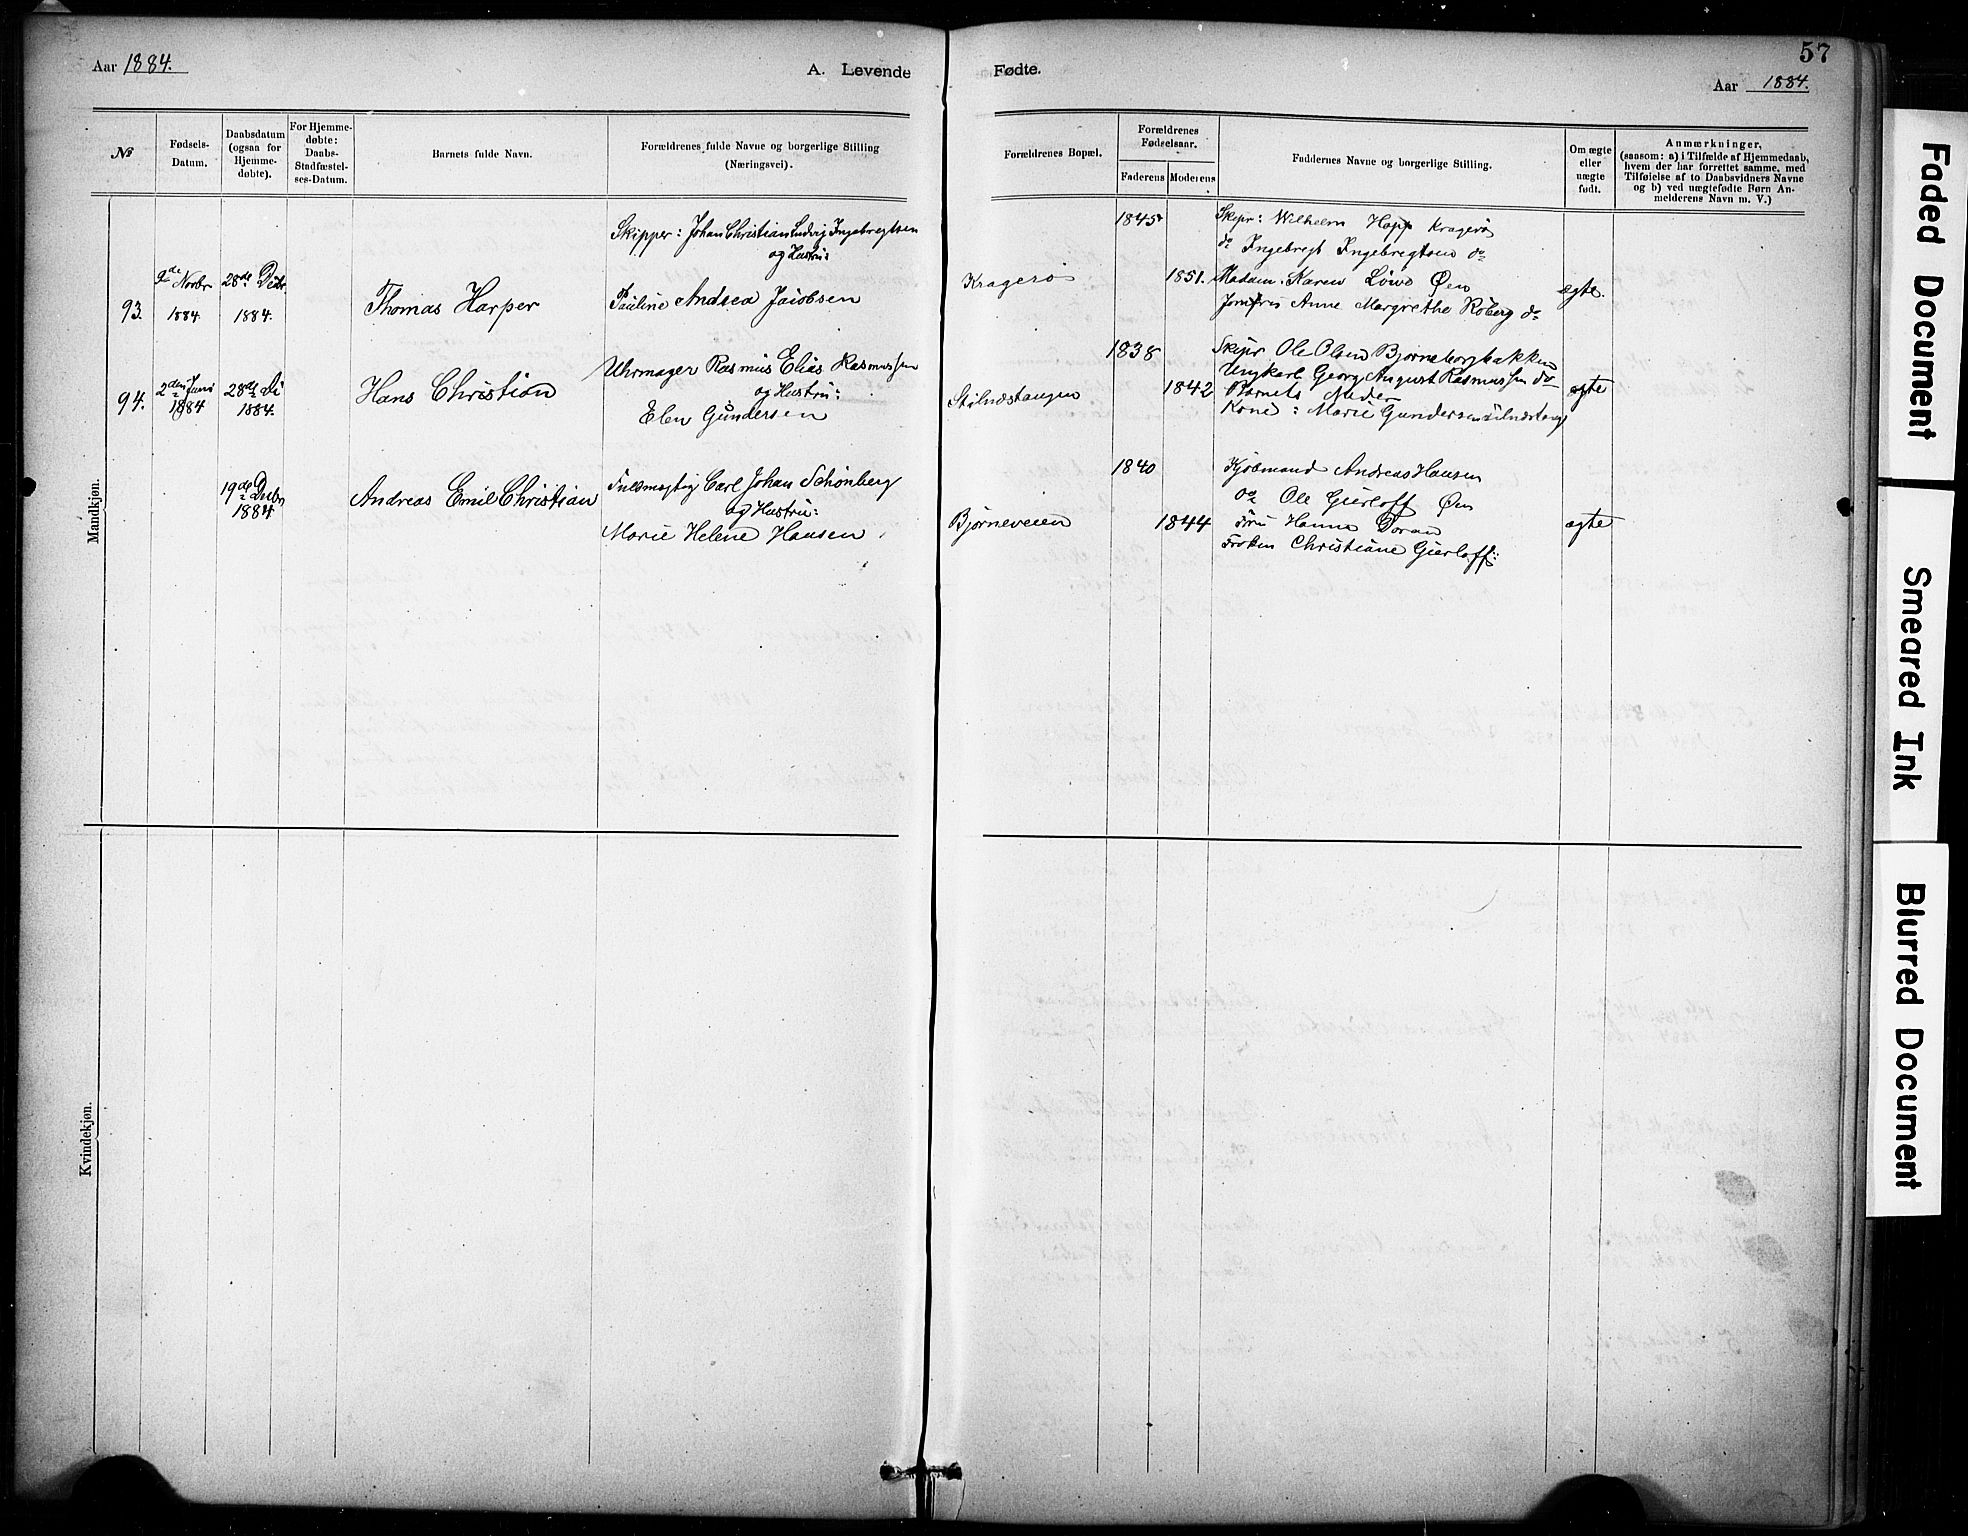 Aar 1884.
A. Levende
Fødte.
57
Aar 1884.
№
Fødsels-
Datum.
Daabsdatum
(ogsaa for
Hjemme-
døbte).
For Hjemme-
døbte:
Daabs-
Stadfæstel-
ses-Datum.
Barnets fulde Navn.
Forældrenes fulde Navne og borgerlige Stilling
(Næringsvei).
Forældrenes Bopæl.
Forældrenes
Fødselsaar.
Faderens
Moderens
Faddernes Navne og borgerlige Stilling.
Om ægte
eller
uægte
født.
Anmærkninger,
(saasom: a) i Tilfælde af Hjemmedaab,
hvem der har forrettet samme, med
Tilføielse af to Daabsvidners Navne
og b) ved uægtefødte Børn An-
melderens Navn m. V.)
Mandkjøn.
93.
9de Novbr
1884.
28de Decbr.
1884.
Thomas Harper
Skipper: Johan Christian Ludvig Ingebregtsen
og Hustru:
Pauline Andrea Jacobsen
Kragerø
1845
1851.
Skipr: Wilhelm Hopp Kragerø
do Ingebregt Ingebregtsen do
Madam Karen Løwe Øen
Jomfru Anne Margrethe Roberg do
ægte.
94.
2den Juni
1884
28de
1884.
Hans Christian
Uhrmager Rasmus Elias Rasmussen
og Hustru:
Elen Gundersen
Stilnæstangen
1838
1842
Skipr Ole Olsen Bjørneborgbakken
Ungkarl Georg August Rasmussen do
Barnets Moder
Kone: Marie Gundersen
ægte
19de Decbr
1884
Andreas Emil Christian
Fuldmægtig Carl Johan Schønberg
og Hustru:
Marie Helene Hansen
Bjørneveien
1840
1844
Kjøbmand Andreas Hansen
do Ole Gierløff Øen
Fru Hanna Doran
Frøken Christiane Gierløff:
ægte
Kvindekjøn.
Faded Document
Smeared Ink
Blurred Document